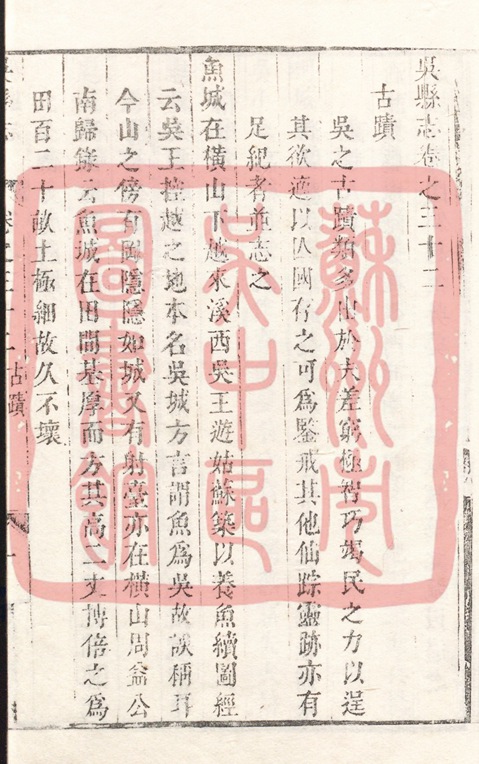 吳縣志卷之三十二
古蹟
吳之古蹟類多出於夫差窮極智巧竭民之力以逞
其欲適以亾國存之可為鑒戒其他仙踪靈跡亦有
足紀者並志之
魚城在橫山下越來溪西吳王遊姑蘇築以養魚續圖經
云吳王控越之地本名吳城方言謂魚為吳故誤稱耳
今山之傍有岡隱隱如城又有射臺亦在橫山周益公
南歸錄云魚城在田間基厚而方其高二丈博倍之為
田百二十畝土極細故久不壞
卷之三十二 古蹟 一
蘇州市
吳中區
圖書館